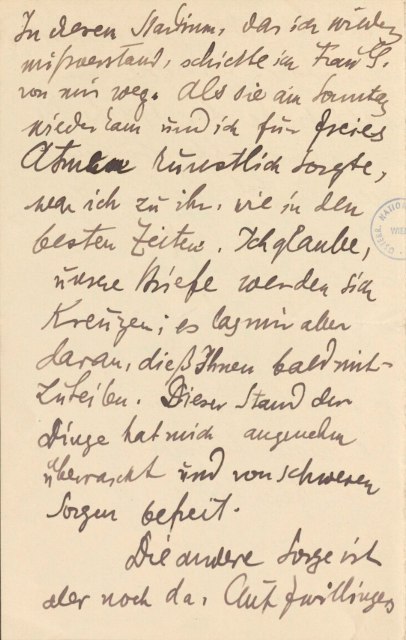 In deren Stadium, das ich wieder
mißverstand, schickte ich Frau S.
von mir weg. Als sie am Sonntag
wiederkam und ich für freies
Atmen künstlich sorgte,
war ich zu ihr, wie in den
besten Zeiten. Ich glaube,
unsere Briefe werden sich
Kreuzen; es lag mir aber
daran, dieß Ihnen bald mit-
zuteilen. Dieser Stand der
Dinge hat mich angenehm
überrascht und von schweren
Sorgen befreit.
Die andere Sorge ist
aber noch da. Auf
ÖSTERR. NATIO
WIEN